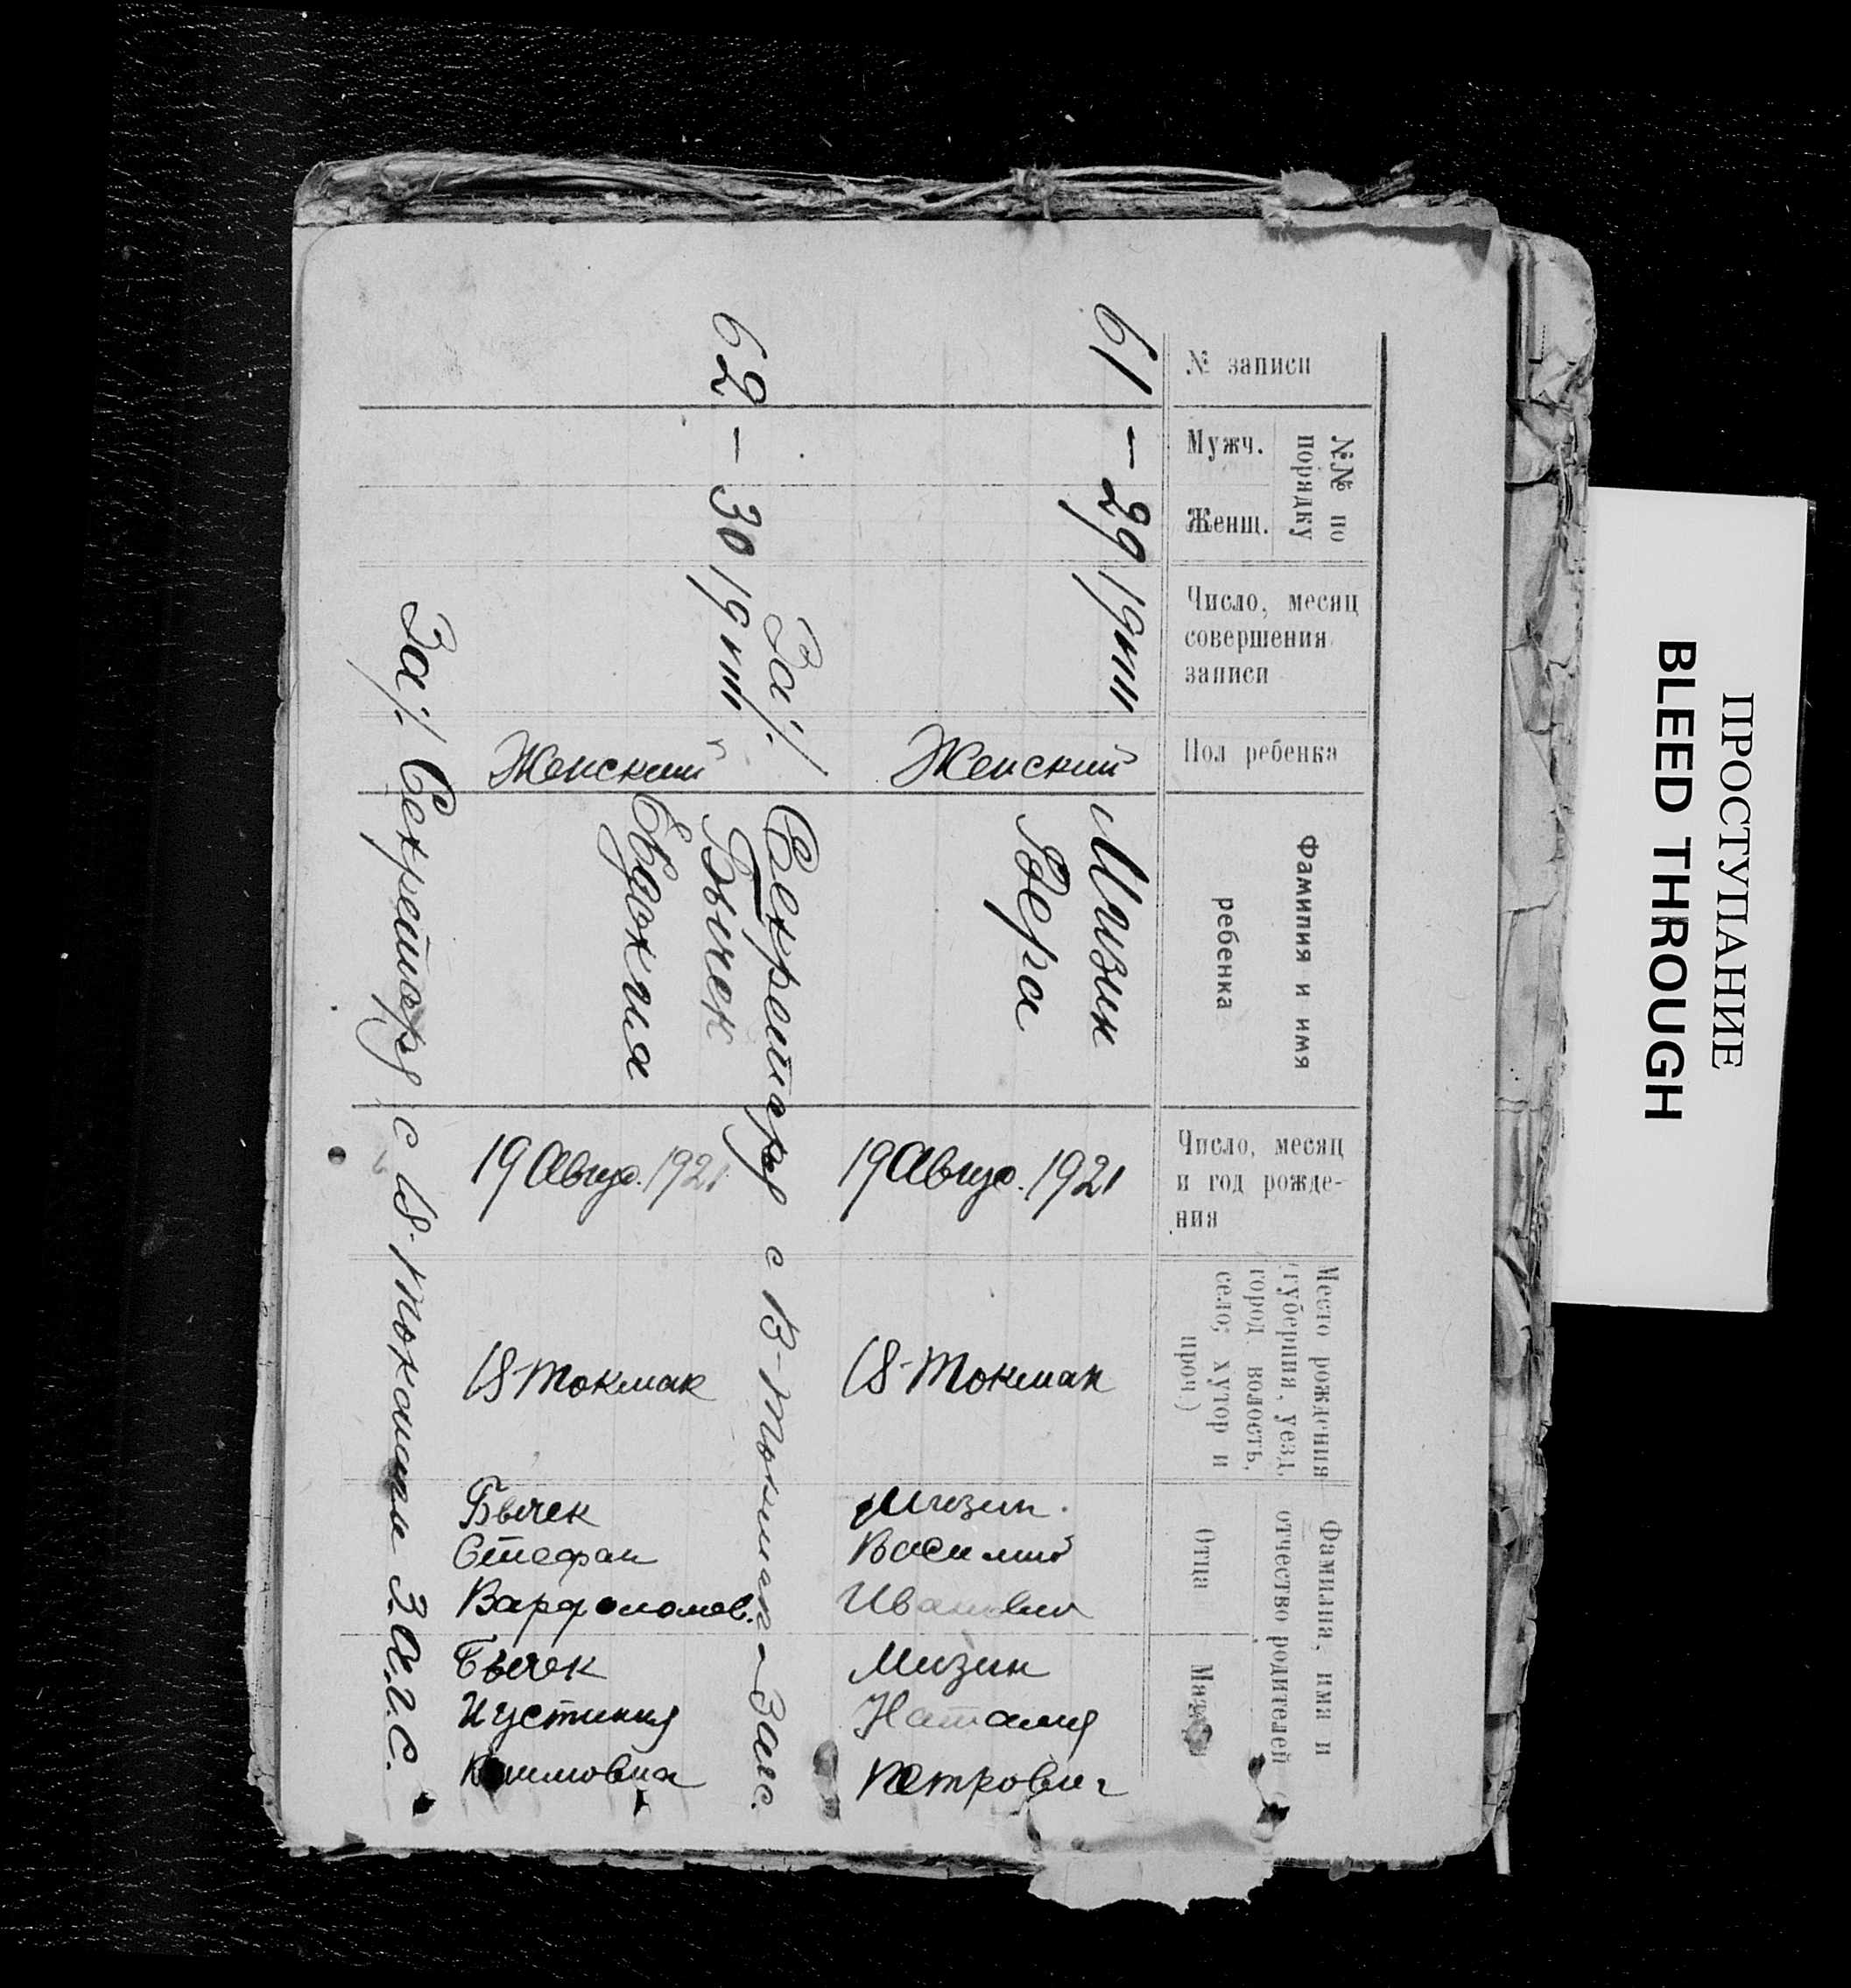 № записи
№№ по
порядку
Мужч.
Женщ.
Число, месяц
совершения
записи
Пол ребенка
Фамилия и имя
ребенка
Число, месяц
и год рожде-
ния
Место рождения
(губерния, уезд,
город, волость,
село, хутор и
проч.)
Фамилия, имя и
отчество родителей
Отца
Матери
61 - 29 19 VIII
Женский
Мизин
Вера
19 Авгус. 1921
В-Токмак
Мизин
Василий
Мизин
Наталия
За/. Секретарь с В-Токмак Загс.
62 - 30 19 VIII
Женский
Бычек
Евдокия
19 Авгус. 1921
В-Токмак
Бычек
Стефан
Варфоломев.
Бычек
Иустиния
За/. Секретарь с В-Токмака З.А.Г.С.
ПРОСТУПАНИЕ
BLEED THROUGH